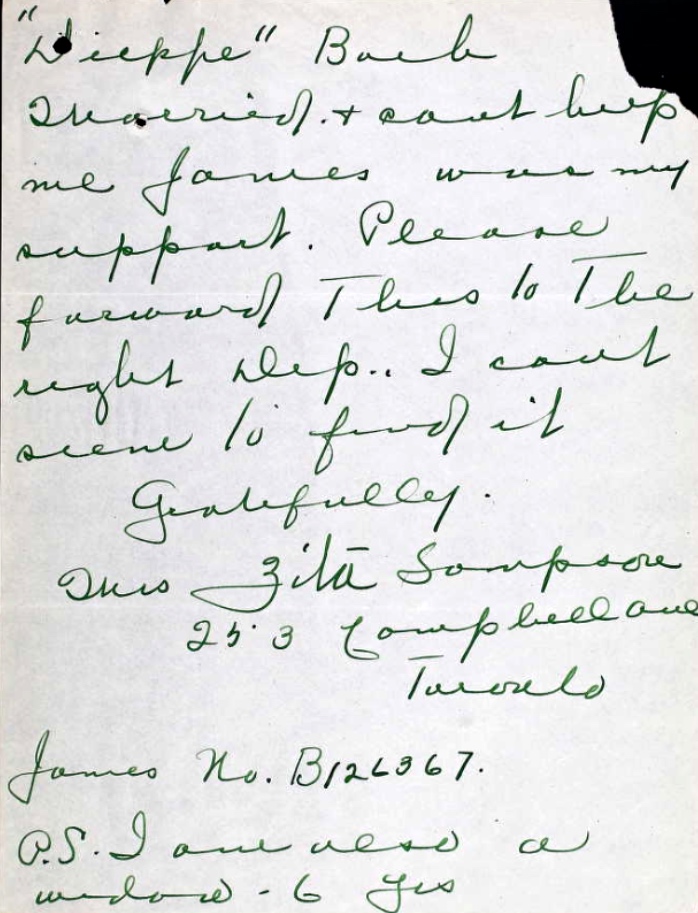 "Dieppe" Both
Married. + cant keep
me James was my
support. Please
forward This to The
right Dep.. I cant
seem to find it
Gratefully.
Mrs Zita Sampson
253 Campbell ave
Toronto
James No. B126367.
P.S. I am also a
widow - 6 yrs